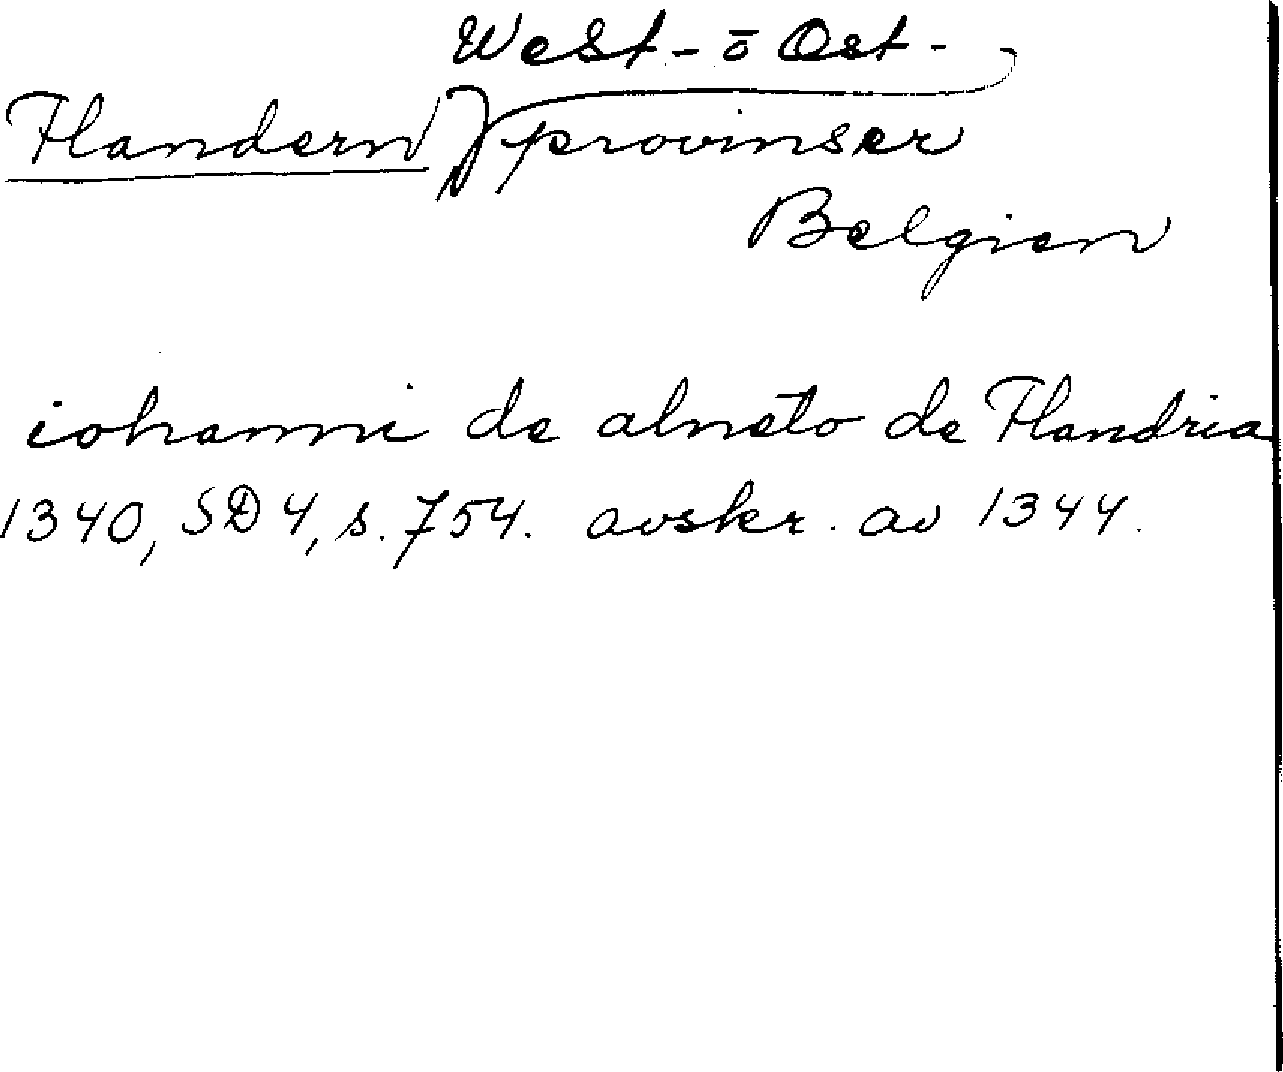 West- o Ost-
Flandern provinser
Belgien
iohanni de alneto de Flandria
1340, SD 4, s. 754. avskr. av 1344.